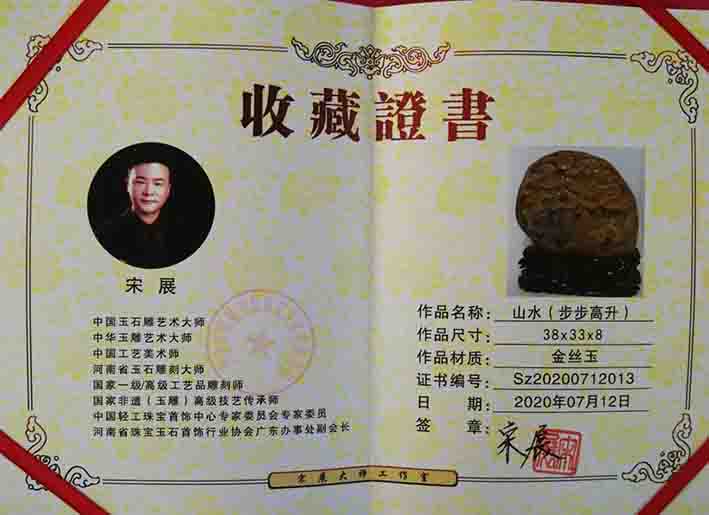 收藏證書
宋 展
中国玉石雕艺术大师
中华玉雕艺术大师
中国工艺美术师
河南省玉石雕刻大师
国家一级/高级工艺品雕刻师
国家非遗（玉雕）高级技艺传承师
中国轻工珠宝首饰中心专家委员会专家委员
河南省珠宝玉石首饰行业协会广东办事处副会长
作品名称：山水（步步高升）
作品尺寸：38x33x8
作品材质：金丝玉
证书编号：Sz20200712013
日 期：2020年07月12日
签 章：宋展
宋展大师工作室